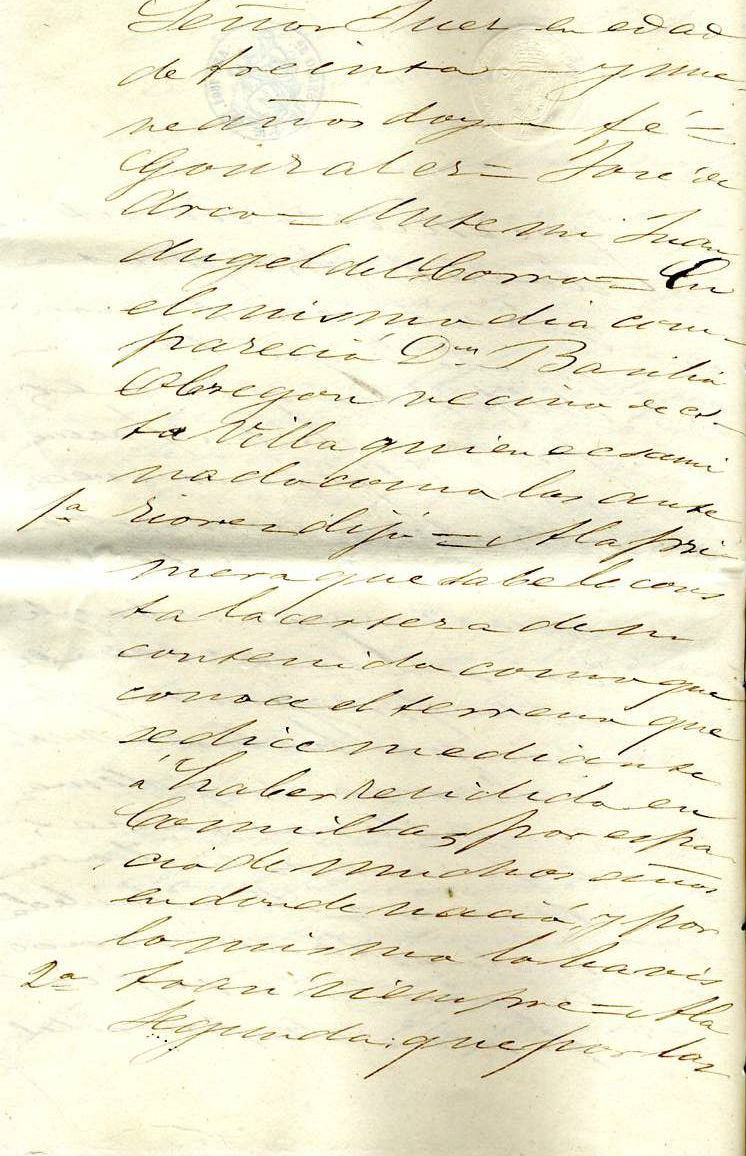 Señor Juez en edad
de treinta y nue-
ve años doy fé =
Gonzalez = José de
Arco = Ante mi Juan
Angel del Corro = En
el mismo dia com-
pareció Dn Basilio
Obregon vecino de es-
ta Villa quien ecsami
nado como los ante
1a riores dijo = A la pri
mera que sabe le cons
ta la certeza de su
contenido como que
conoce el terreno que
se dice mediante
á haber recidido en
Comillas por espa-
cio de muchos años
en donde nació, y por
lo mismo lo ha vis
2a to an siempre = A la
segunda: que por las